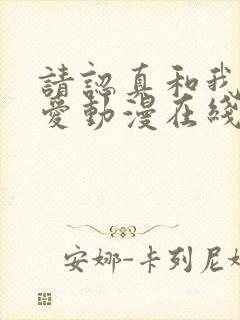 請認真和我
愛動漫在綫
安娜-卡列尼